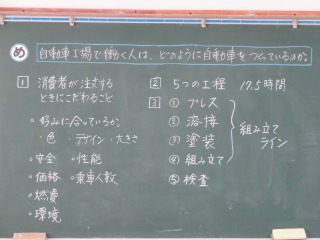 め 自動車工場で働く人は、どのように自動車をつくっているのか。
1 消費者が注文する
ときにこだわること
・好みに合っているか
・色 ・デザイン ・大きさ
・安全 ・性能
・価格 ・乗車人数
・燃費
・環境
2 5つの工程 17.5時間
3 ① プレス
② 溶接
③ 塗装
④ 組み立て
⑤ 検査
組み立て
ライン